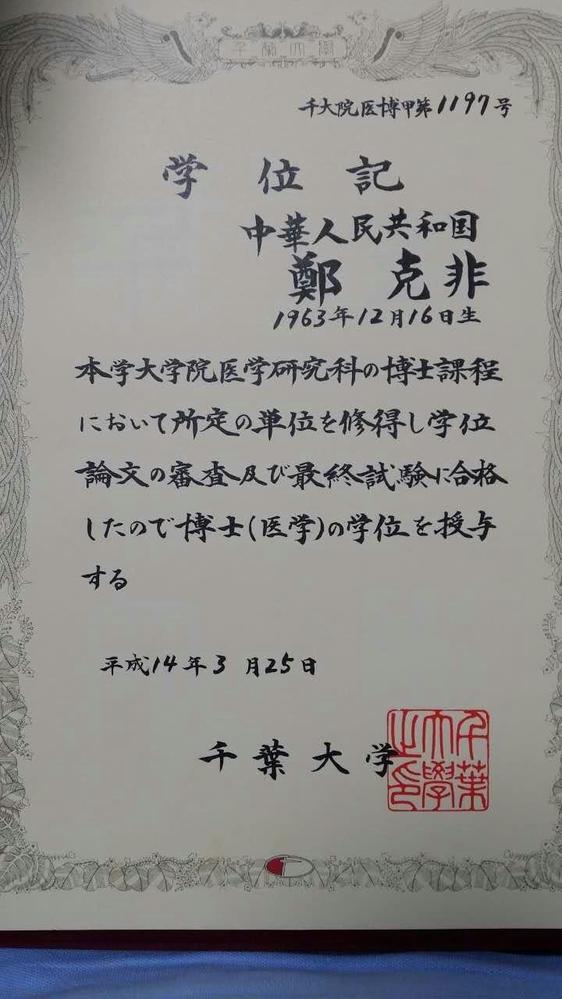 千葉大學
千大院医博甲第1197号
学位記
中華人民共和国
鄭克非
1963年12月16日生
本学大学院医学研究科の博士課程
において所定の単位を修得し学位
論文の審査及び最終試験に合格
したので博士(医学)の学位を授与
する
平成14年3月25日
千葉大学
千葉
大學
之印